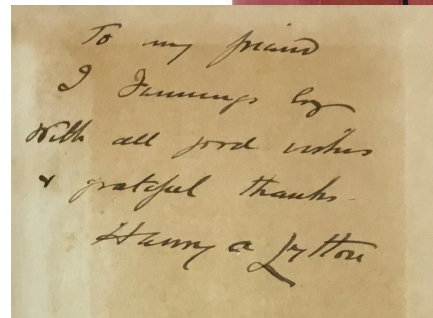 To my friend
J Jennings Esq
With all good wishes
& grateful thanks.
Henry A Lytton